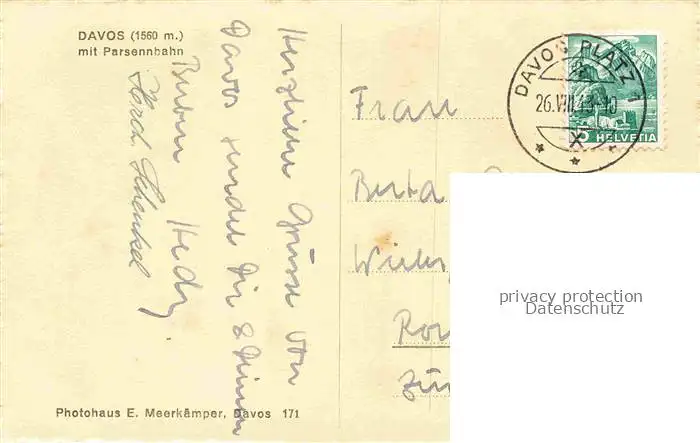 DAVOS (1560 m.)
mit Parsennbahn
Herzliche Grüsse von
Davos sendet Dir & Deinen
Buben Hedy
Schenkel
Frau
Berta
Zür
DAVOS PLATZ 1
26.VIII.43-10
5 HELVETIA
privacy protection
Datenschutz
Photohaus E. Meerkämper, Davos 171